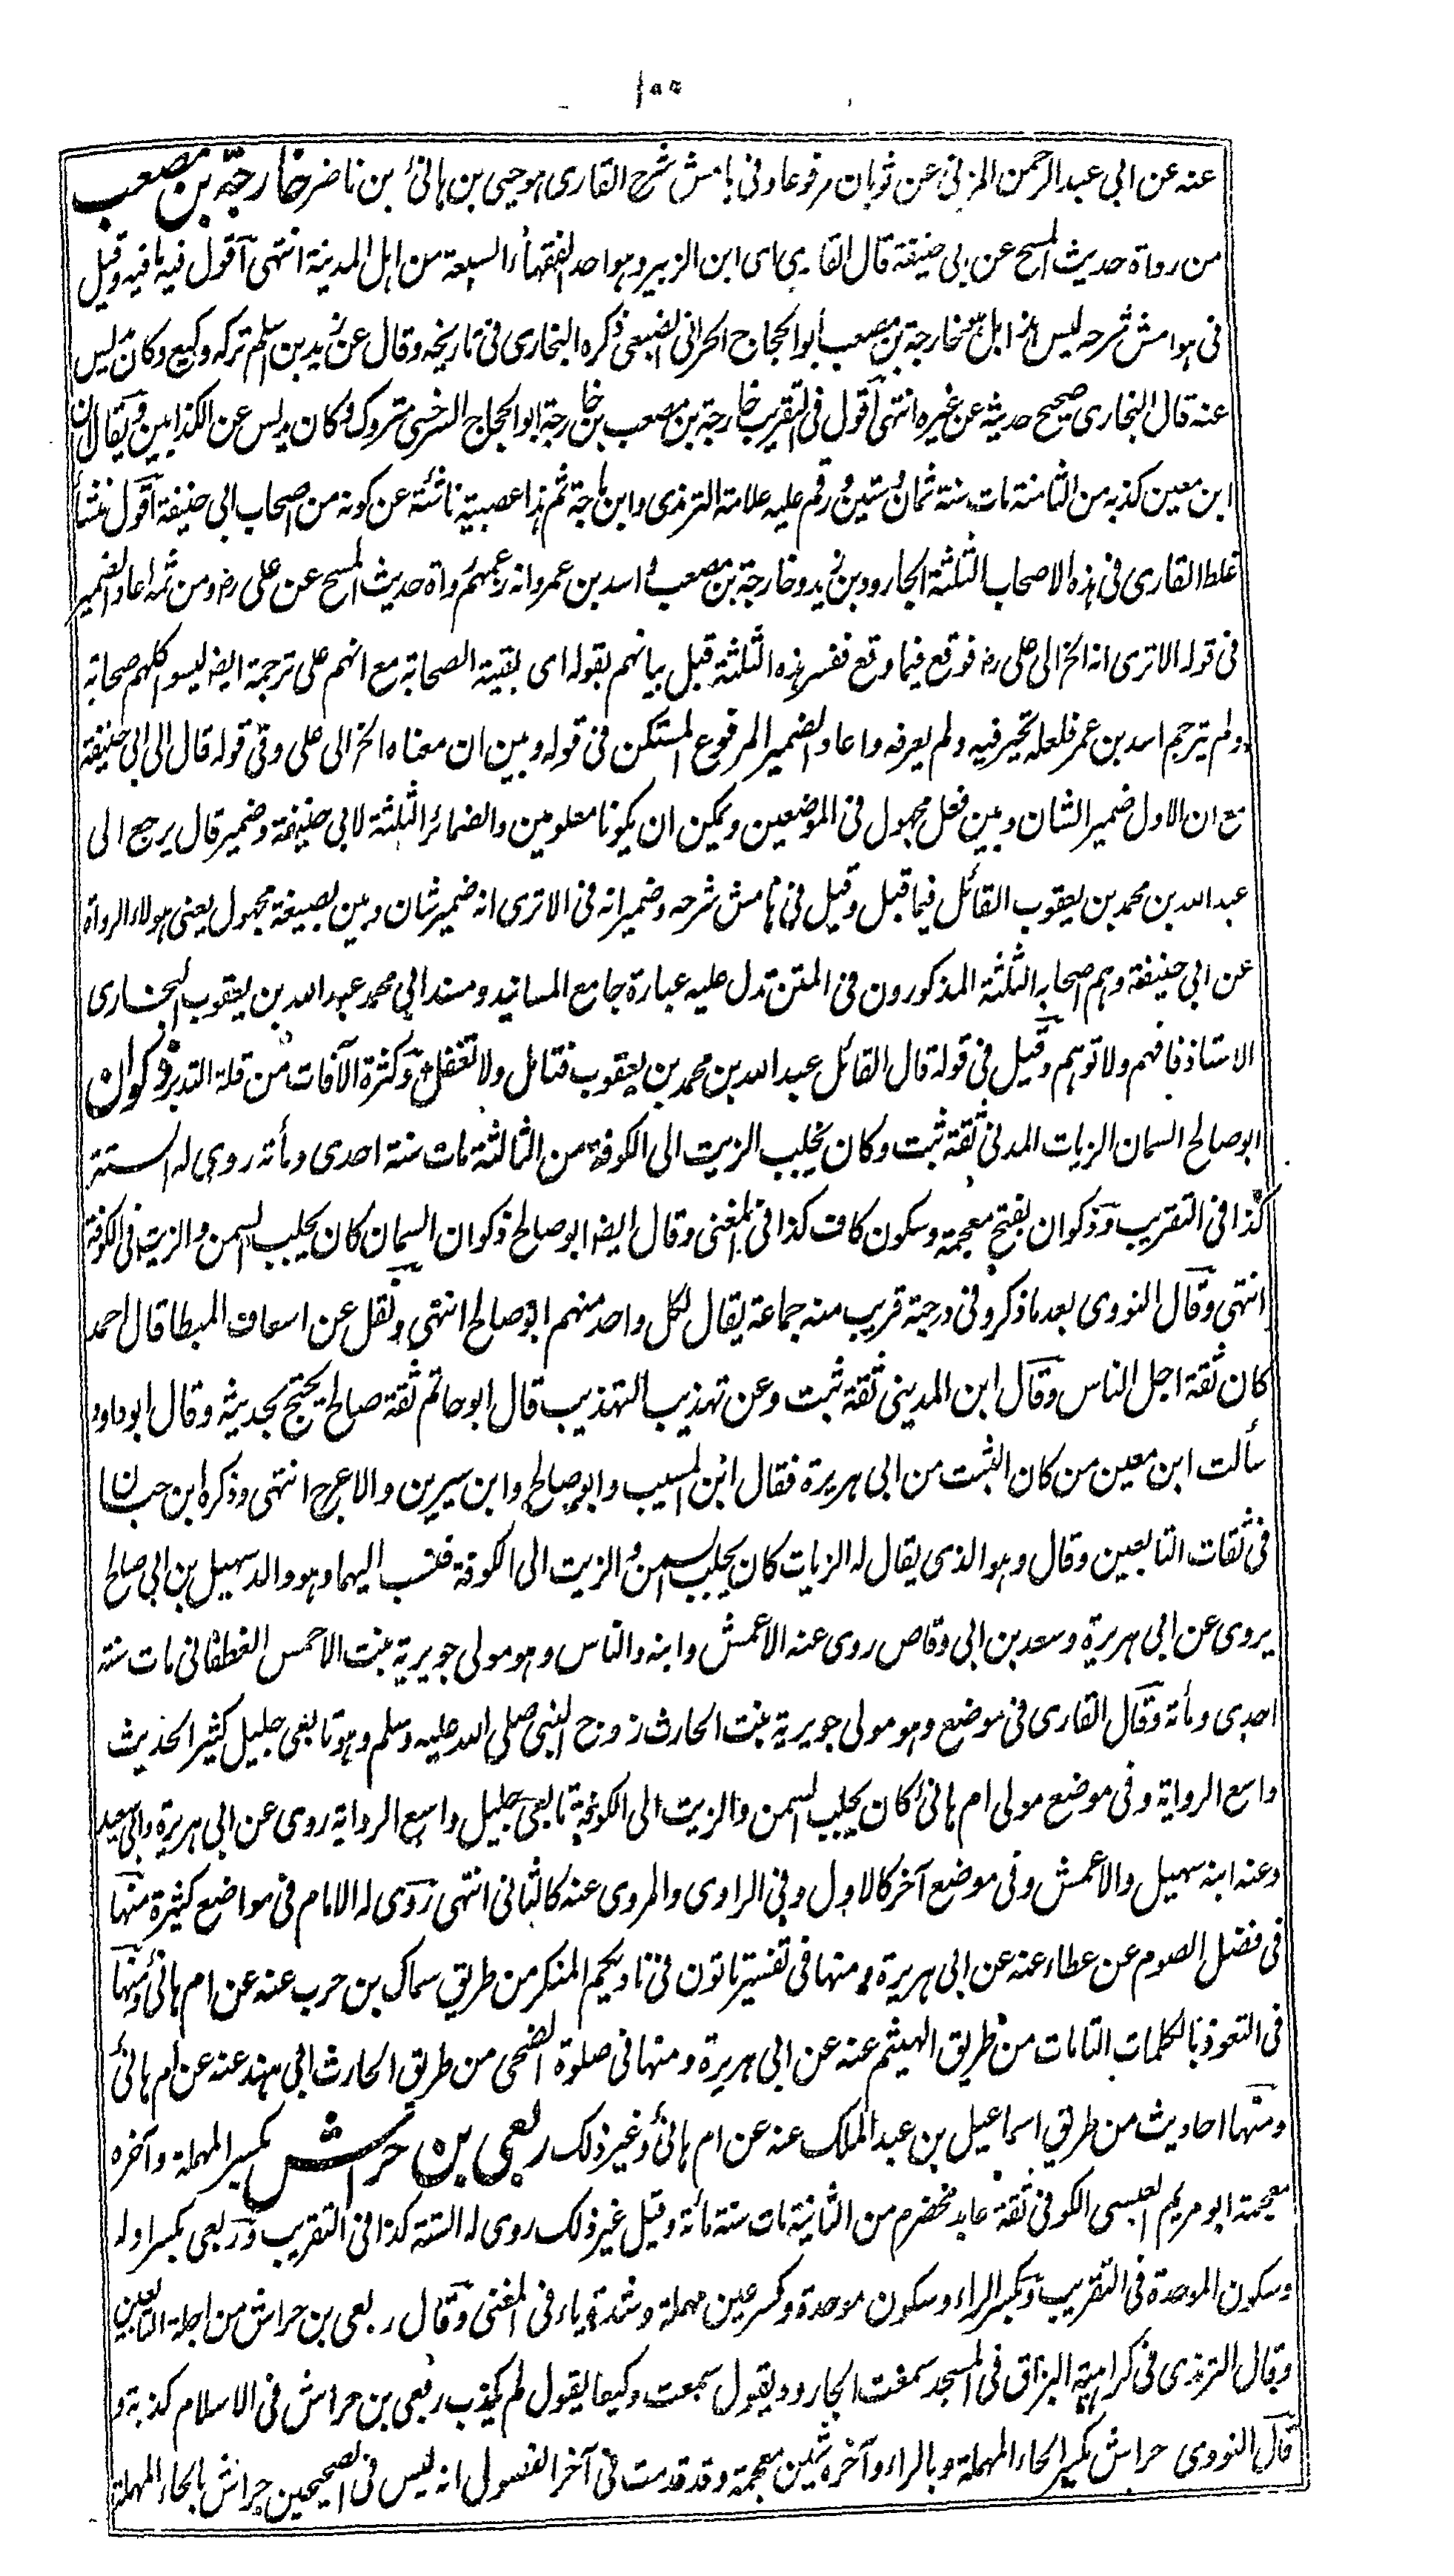 ١٠٥
عنه عن ابى عبد الرحمن المزنى عن ثوبان مرفوعا وفى هامش شرح القارى هو يحيى بن هانئ بن ناضر خارجة بن مصعب
من رواة حديث المسح عن ابى حنيفة قال القارى اى ابن الزبير وهو احد الفقهاء السبعة من اهل المدينة انتهى اقول فيه ما فيه وقيل
فى هوامش شرحه ليس هذا بل خارجة بن مصعب أبو الحجاج الخراسانى الضبعى ذكره البخارى فى تاريخه وقال عن يزيد بن اسلم تركه وكيع وكان يدلس
عنه قال البخارى صحيح حديثه عن غيره انتهى اقول فى التقريب خارجة بن مصعب بن خارجة ابو الحجاج السرخسى متروك وكان يدلس عن الكذابين ويقال ان
ابن معين كذبه من الثامنة مات سنة ثمان وستين ورقم عليه علامة الترمذى وابن ماجة ثم هذا عصبية ناشئة عن كونه من اصحاب ابى حنيفة اقول منشأ
غلط القارى فى هذه الاصحاب الثلثة الجارود بن يزيد وخارجة بن مصعب واسد بن عمرو انه زعمهم رواة حديث المسح عن على رض ومن ثمه اعاد الضمير
فى قوله الا ترى انه الخ الى على رض فوقع فيما وقع ففسر هذه الثلثة قبل بيانهم بقوله اى بقية الصحابة مع انهم على ترجمة ايضا ليسوا كلهم صحابة
ولم يترجم اسد بن عمر فلعله تحير فيه ولم يعرفه واعاد الضمير المرفوع المستكن فى قوله وبين ان معناه الخ الى على وفى قوله قال الى ابى حنيفة
مع ان الاول ضمير الشان وبين فعل مجهول فى الموضعين ويمكن ان يكونا معلومين والضمائر الثلثة لابى حنيفة وضمير قال يرجع الى
عبد الله بن محمد بن يعقوب القائل فيما قبل وقيل فى هامش شرحه وضمير انه فى الا ترى انه ضمير شان وبين بصيغة مجهول يعنى هؤلاء الرواة
عن ابى حنيفة وهم اصحابه الثلثة المذكورون فى المتن تدل عليه عبارة جامع المسانيد ومسند ابى محمد عبد الله بن يعقوب البخارى
الاستاذ فافهم ولا توهم وقيل فى قوله قال القائل عبد الله بن محمد بن يعقوب فتأمل ولا تغفل وكثرة الآفات من قلة التدبر ذكوان
ابو صالح السمان الزيات المدنى ثقة ثبت وكان يجلب الزيت الى الكوفة من الثالثة مات سنة احدى ومأته روى له الستة
كذا فى التقريب وذكوان بفتح معجمة وسكون كاف كذا فى المغنى وقال ايضا ابو صالح ذكوان السمان كان يجلب السمن والزيت فى الكوفة
انتهى وقال النووى بعد ما ذكر وفى درجته قريب منه جماعة يقال لكل واحد منهم ابو صالح انتهى ونقل عن اسعاف المبطا قال احمد
كان ثقة اجل الناس وقال ابن المدينى ثقة ثبت وعن تهذيب التهذيب قال ابو حاتم ثقة صالح يحتج بحديثه وقال ابو داود
سألت ابن معين من كان الثبت من ابى هريرة فقال ابن المسيب وابو صالح وابن سيرين والاعرج انتهى وذكره ابن حبان
فى ثقات التابعين وقال وهو الذى يقال له الزيات كان يجلب السمن والزيت الى الكوفة فنسب اليهما وهو والد سهيل بن ابى صالح
يروى عن ابى هريرة وسعد بن ابى وقاص روى عنه الاعمش وابنه والناس وهو مولى جويرية بنت الاحمس الغطفانى مات سنة
احدى ومأته وقال القارى فى موضع وهو مولى جويرية بنت الحارث زوج النبى صلى الله عليه وسلم وهو تابعى جليل كثير الحديث
واسع الرواية وفى موضع مولى ام هانئ كان يجلب السمن والزيت الى الكوفة تابعى جليل واسع الرواية روى عن ابى هريرة وابى سعيد
وعنه ابنه سهيل والاعمش وفى موضع آخر كالاول وفى الراوى والمروى عنه كالثانى انتهى روى له الامام فى مواضع كثيرة منها
فى فضل الصوم عن عطاء عنه عن ابى هريرة ومنها فى تفسير تاتون فى ناديكم المنكر من طريق سماك بن حرب عنه عن ام هانئ ومنها
فى التعوذ بالكلمات التامات من طريق الهيثم عنه عن ابى هريرة ومنها فى صلوة الضحى من طريق الحارث ابى هند عنه عن ام هانئ
ومنها احاديث من طريق اسماعيل بن عبد الملك عنه عن ام هانئ وغير ذلك ربعى بن حراش بكسر المهملة وآخره
معجمة ابو مريم العبسى الكوفى ثقة عابد مخضرم من الثانية مات سنة مائة وقيل غير ذلك روى له الستة كذا فى التقريب وربعى بكسر اوله
وسكون الموحدة فى التقريب وبكسر الراء وسكون موحدة وكسر عين مهملة وشدة ياء فى المغنى وقال ربعى بن حراش من اجلة التابعين
وقال الترمذى فى كراهية البزاق فى المسجد سمعت الجارود يقول سمعت وكيعا يقول لم يكذب ربعى بن حراش فى الاسلام كذبة و
قال النووى حراش بكسر الحاء المهملة وبالراء وآخره شين معجمة وقد قدمت فى آخر الفصول انه ليس فى الصحيحين حراش بالحاء المهملة